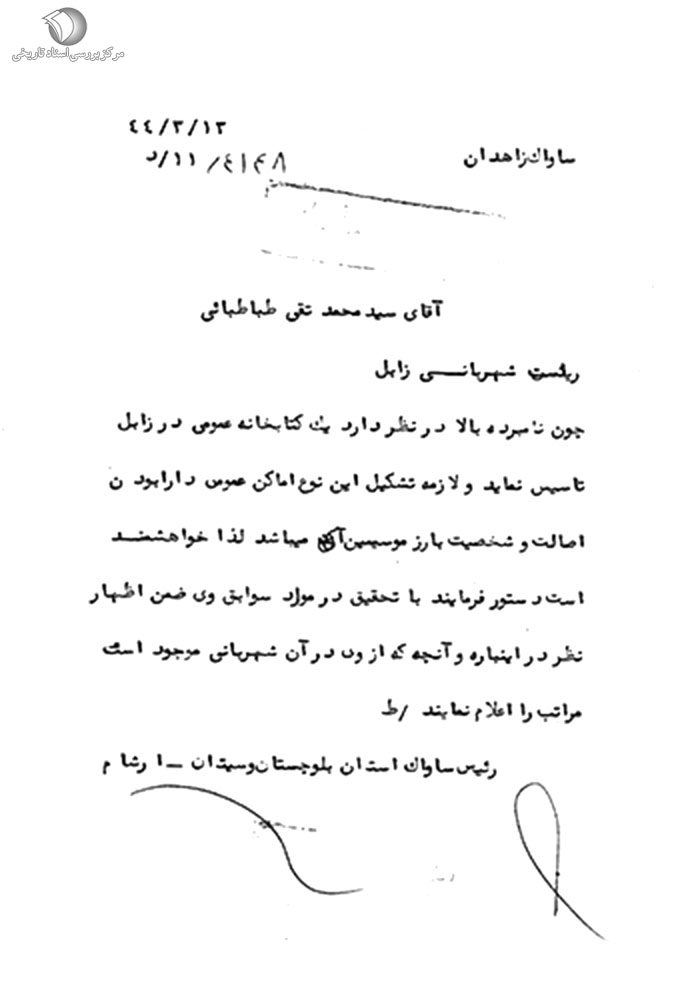 مرکز بررسی اسناد تاریخی
۴۴/۳/۱۳
ساواک زاهدان
۱۱/د
آقای سید محمد تقی طباطبائی
ریاست شهربانی زابل
چون نامبرده بالا در نظر دارد یک کتابخانه عمومی در زابل
تاسیس نماید و لازمه تشکیل این نوع اماکن عمومی دارا بودن
اصالت و شخصیت بارز موسسین آن میباشد لذا خواهشمند
است دستور فرمایند با تحقیق در مورد سوابق وی ضمن اظهار
نظر در اینباره و آنچه که از وی در آن شهربانی موجود است
مراتب را اعلام نمایند /ط
رئیس ساواک استان بلوچستان و سیستان – ارشام